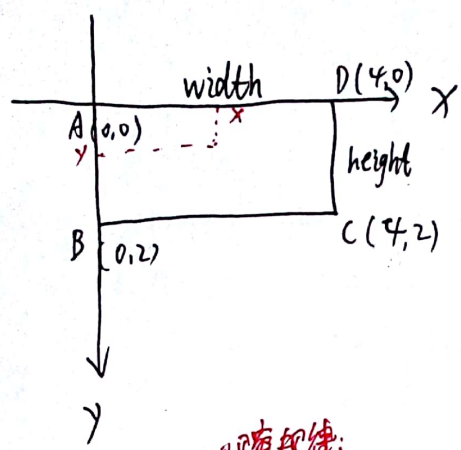 width
D(4,0)
X
A(0,0)
x
y
height
B
(0,2)
C(4,2)
y
规律: